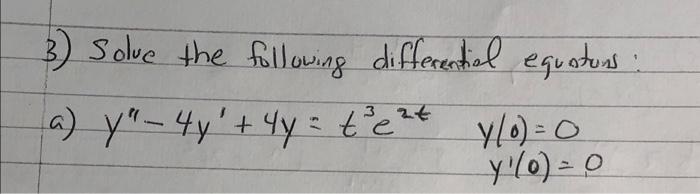 3) Solve the following differential equatons:
a) y" - 4y' + 4y = t³e²ᵗ y(0) = 0
y'(0) = 0